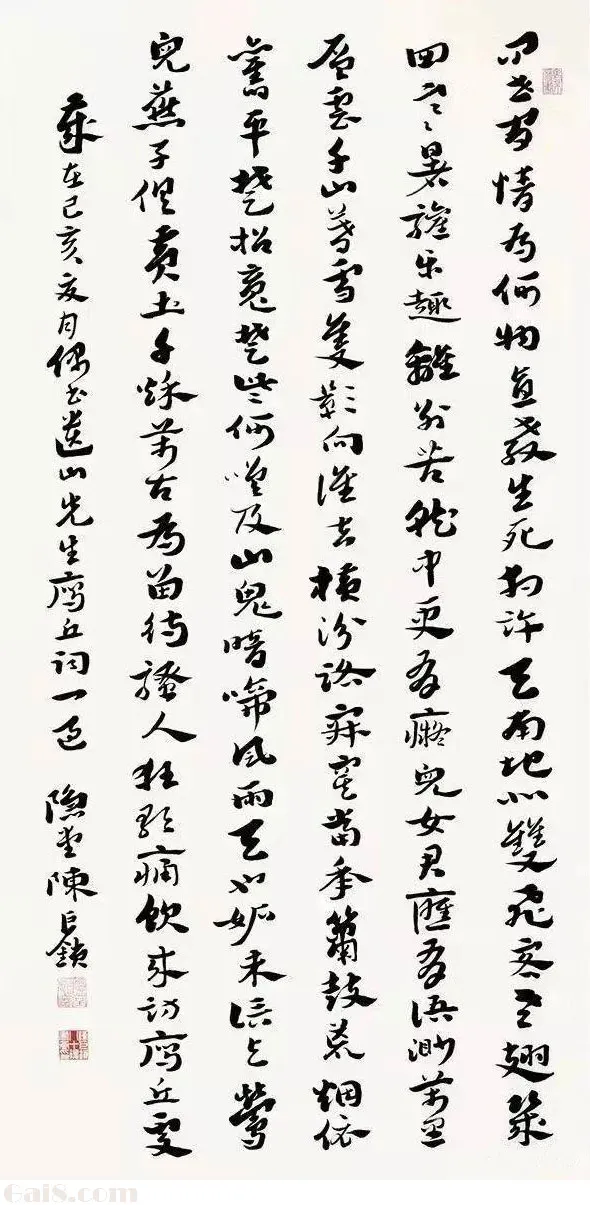 问世間情為何物直教生死相許天南地北雙飛客老翅幾
回寒暑驩乐趣離別苦就中更有癡兒女君應有語渺萬里
層雲千山暮雪隻影向誰去橫汾路寂寞當年簫鼓荒烟依
舊平楚招魂楚些何嗟及山鬼暗啼風雨天也妒未信与鶯
兒燕子俱黃土千秋萬古為留待騷人狂歌痛飲來訪雁丘處
歲在己亥夏月偶書遺山先生雁丘詞一過 隐堂陳巨鎖
Gai8.com